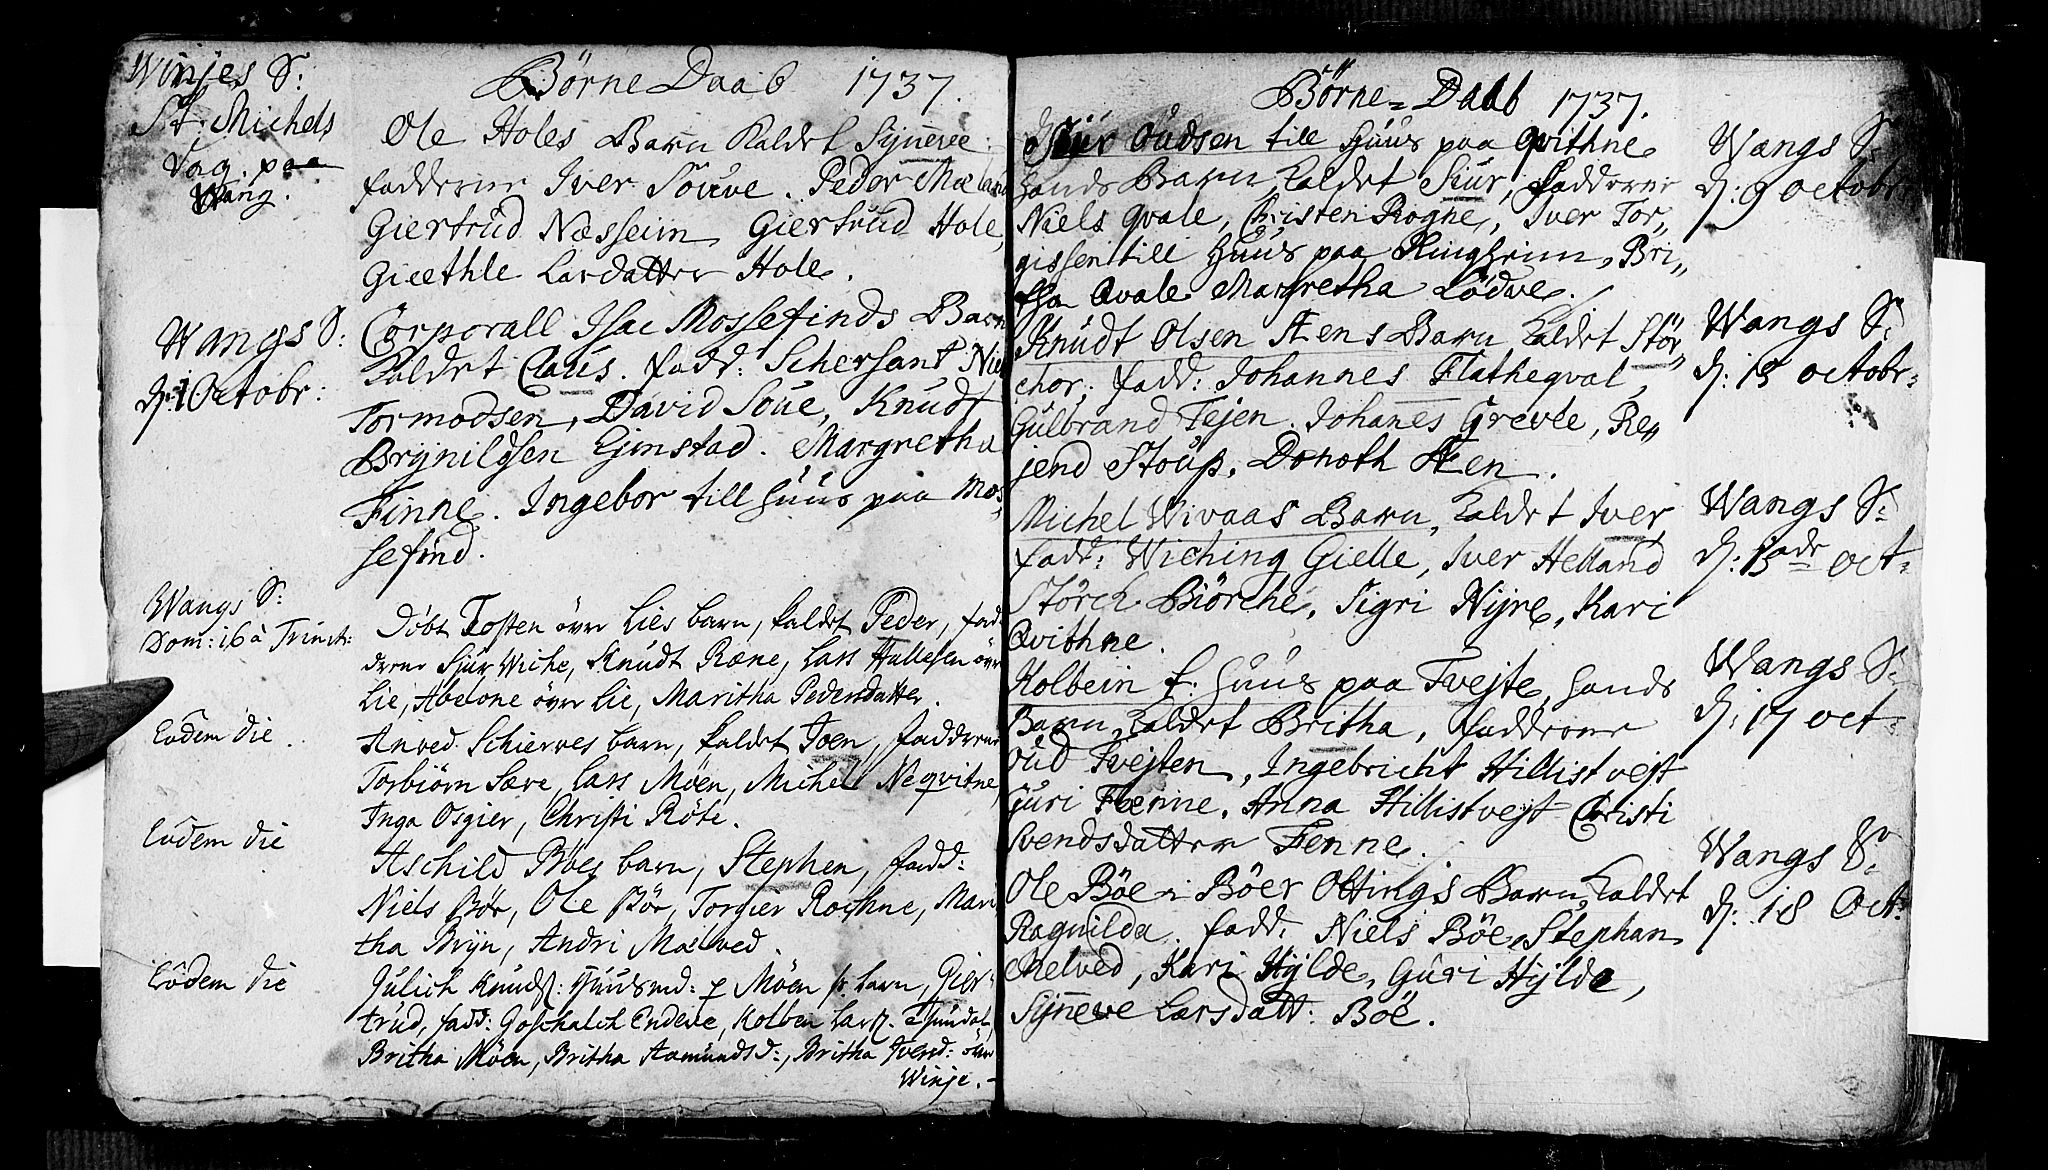 Börne Daab 1737.
Winjes S:
St: Michels
Dag. paa
Wang.
Ole Holes Barn Kaldet Sÿneve
fadderne Iver Souve. Peder Mæland
Giertrud Næsseim, Giertrud Hole,
Gieethle Larsdatter Hole.
Wangs S:
d: 1 Octobr:
Corporall Isac Mossefinds Barn
Kaldet Claus. fadd: Schersant Niels
Tormodsen, David Soue, Knudt
Brÿnildsen Gimstad. Margretha
Finne. Ingebor till Huus paa Mos,
sefind.
Wangs S:
Dom: 16 à Trinit:
Döbt Tosten övre Lies barn, kaldet Peder, fad-
derne Sjur Wiche, Knudt Ræne, Lars Hallesen övre
Lie, Abelone övre Lie, Maritha Pedersdatter.
Eodem die.
Anved Schierves barn, kaldet Joen, fadderne
Torbiörn Sære, Lars Möen, Michel Neqvitne,
Inga Osgier, Christi Röte.
Eodem die
Aschild Böes barn, Stephen, fadd:
Niels Bör, Ole Bör, Torgier Rochne, Mari
tha Brÿn, Andri Mælved.
Eodem die
Julich Knuds: Huusmd: p Möen barn, Gier-
trud, fadd: Goschalch Endeve, Kolben Lars.
Britha Möen, Britha Aamundsd:, Britha Iversd: övre
Winje.-
Börne=Daab 1737.
Sjur Oudsen till Huus paa Qvithne
hands Barn, kaldet Siur, Fadderne
Niels Qvale, Christen Rogne, Iver Tor,,
gissen till Huus paa Ringheim, Bri,,
tha Qvale Margretha Lödve.
Wangs S:
d: 9 octobr:
Knudt Olsen Stens Barn, kaldet Stör,,
chor, fadd: Johannes Flatheqval,
Gulbrand Tejen. Johanes Grevle, Re,,
jend Stoup, Doroth Sten.
Wangs S:
d: 13 octobr=
Michel Wivaas Barn, kaldet Iver,
fadd: Wiching Gielle, Iver Helland
Störch Biörche, Sigri Nÿre, Kari
Qvithne.
Wangs S:
d: 13 oct=
Kolbein f: Huus paa Tvejte, hands
Barn, kaldet Britha, fadderne
Oud Tvejten, Ingebricht Hillistvejt
Guri Fenne, Anna Hillistvejt Christi
Svendsdatter Fenne.
Wangs S:
d: 17 oct=
Ole Böe i Böer Ottings Barn, kaldet
Ragnilda. fadd: Niels Böe, Stephan
Melved, Kari Hÿlde, Guri Hÿlde,
Sÿneve Larsdatt: Böe.
Wangs S:
d: 18 Oct: